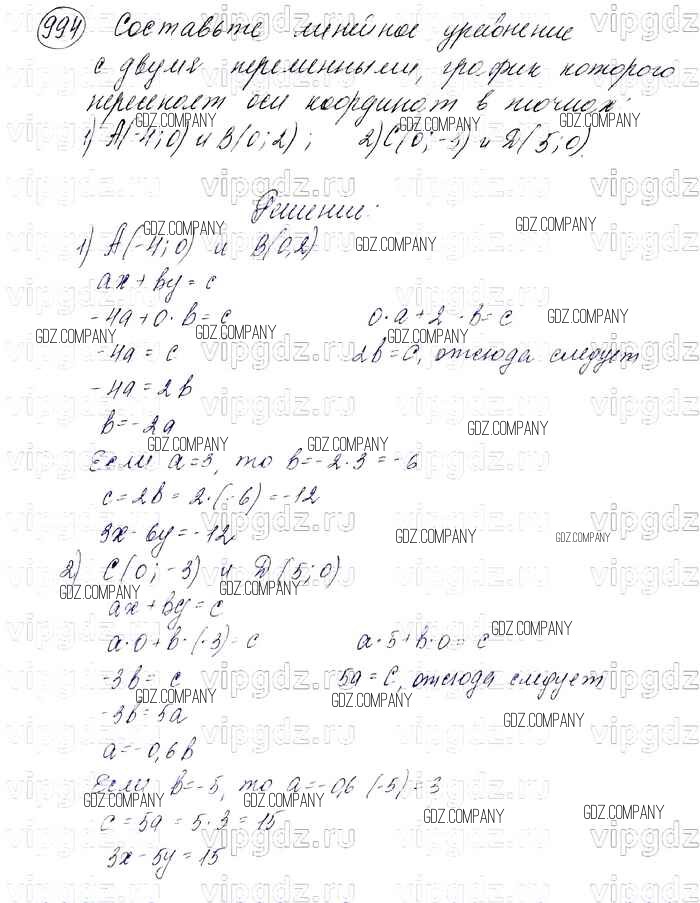 994 Составьте линейное уравнение
с двумя переменными, график которого
пересекает оси координат в точках:
1) A(-4; 0) и B(0; 2); 2) C(0; -3) и D(5; 0).
Решение:
1) A(-4; 0) и B(0, 2)
ax + by = c
-4a + 0 · b = c 0 · a + 2 · b = c
-4a = c 2b = c, отсюда следует
-4a = 2b
b = -2a
Если a = 3, то b = -2 · 3 = -6
c = 2b = 2 · (-6) = -12
3x - 6y = -12
2) C(0; -3) и D(5; 0)
ax + by = c
a · 0 + b · (-3) = c a · 5 + b · 0 = c
-3b = c 5a = c, отсюда следует
-3b = 5a
a = -0,6b
Если b = -5, то a = -0,6 (-5) = 3
c = 5a = 5 · 3 = 15
3x - 5y = 15
vipgdz.ru
GDZ.COMPANY